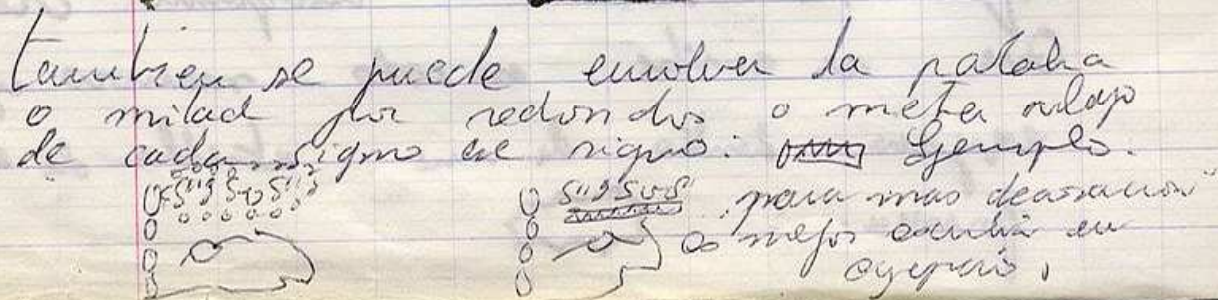 tambien se puede envolver la palabra
o mitad por redondos o meter abajo
de cada signo ese signo: Ejemplo.
para mas decoracion
es mejor escribir en